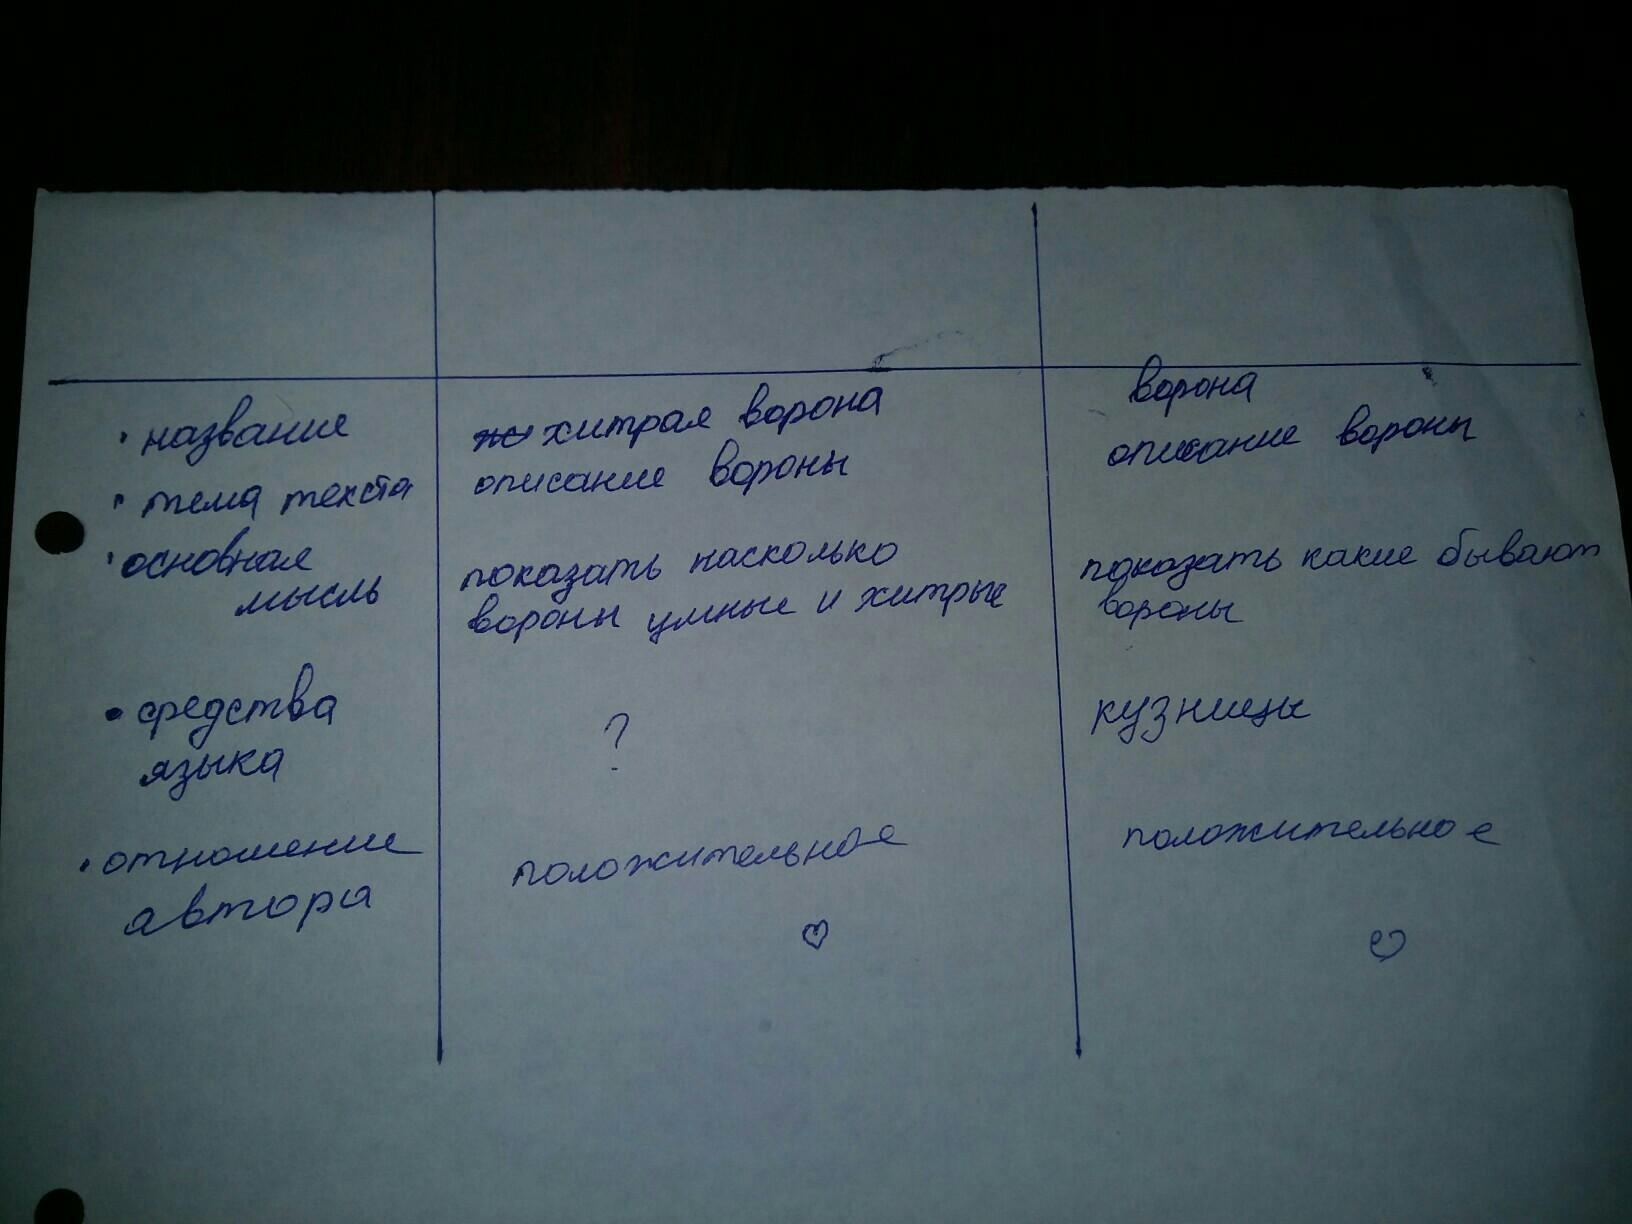 ворона
• название хитрая ворона описание вороны
• тема текста описание вороны
• основная
мысль
показать насколько
вороны умные и хитрые
показать какие бывают
вороны
• средства
языка
?
кузницы
• отношение
автора
положительное
положительное